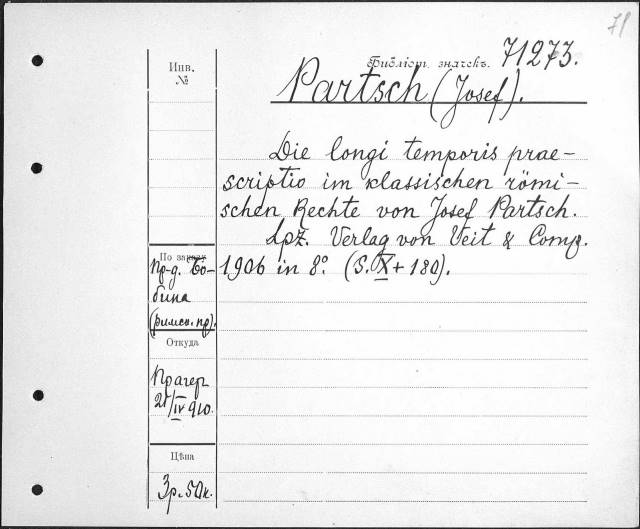 71
Инв.
№
Библіот. значекъ.
71273.
Partsch (Josef).
Die longi temporis prae-
scriptio im klassischen römi-
schen Rechte von Josef Partsch.
Lpz. Verlag von Veit & Comp.
1906 in 8.° (S. X + 180).
По заказу
Пр-д. Бо-
бина
(римск. пр).
Откуда
Прагер
21/IV 910.
Цѣна
3р. 50к.